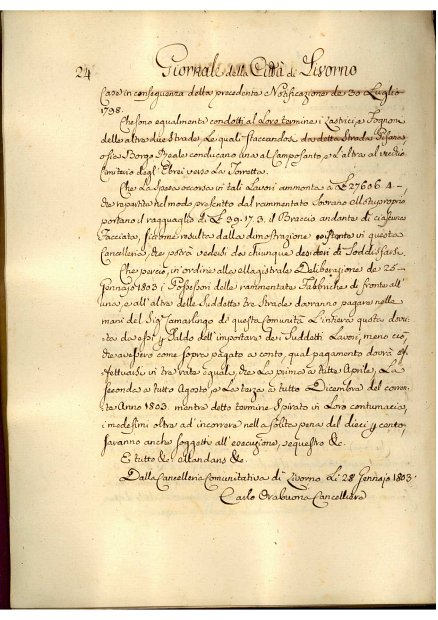 24 Giornale della Città di Livorno
Case in conseguenza della precedente Notificazione de 30 Luglio
1798.
Che sono egualmente condotti al Loro termine i Lastrici, e Fognoni
delle altre due Strade, Le quali staccandosi da detta Strada Pisana
osia Borgo Reale conducano una al Camposanto, e L'altra al vecchio
Cimiterio degl'Ebrei verso La Torretta.
Che La Spesa occorsa in tali Lavori ammonta a £ 27606. 4 -
che repartita nel modo prescritto dal rammentato Sovrano Motuproprio
portano il ragguaglio di £ 39. 17. 3. il Braccio andante di ciascuna
Facciata, siccome resulta dalla dimostrazione esistente in questa
Cancelleria, che potrà vedersi da chiunque desideri di Soddisfarsi.
Che perciò, in ordine alla Magistrale Deliberazione de 25
Gennajo 1803 i Possessori delle rammentate Fabbriche di fronte all'
una, e all'altra delle Suddette tre Strade dovranno pagare nelle
mani del Sig. Camarlingo di questa Comunità L'intiera quota dovu-
ta da essi p Saldo dell'importare dei Suddetti Lavori, meno ciò,
che avessero come sopra pagato a conto, qual pagamento dovrà ef-
fettuarsi in tre rate eguali, che La prima a tutto Aprile, La
Seconda a tutto Agosto, e La terza a tutto Dicembre del corren-
te Anno 1803. mentre detto termine Spirato in Loro contumacia,
i medesimi oltre ad incorrere nella Solita pena del dieci p cento,
saranno anche Soggetti all'esecuzione, sequestro &c.
E tutto &c. Mandans &c.
Dalla Cancelleria Comunitativa di Livorno Li 28 Gennajo 1803.
Carlo Orabuona Cancelliere